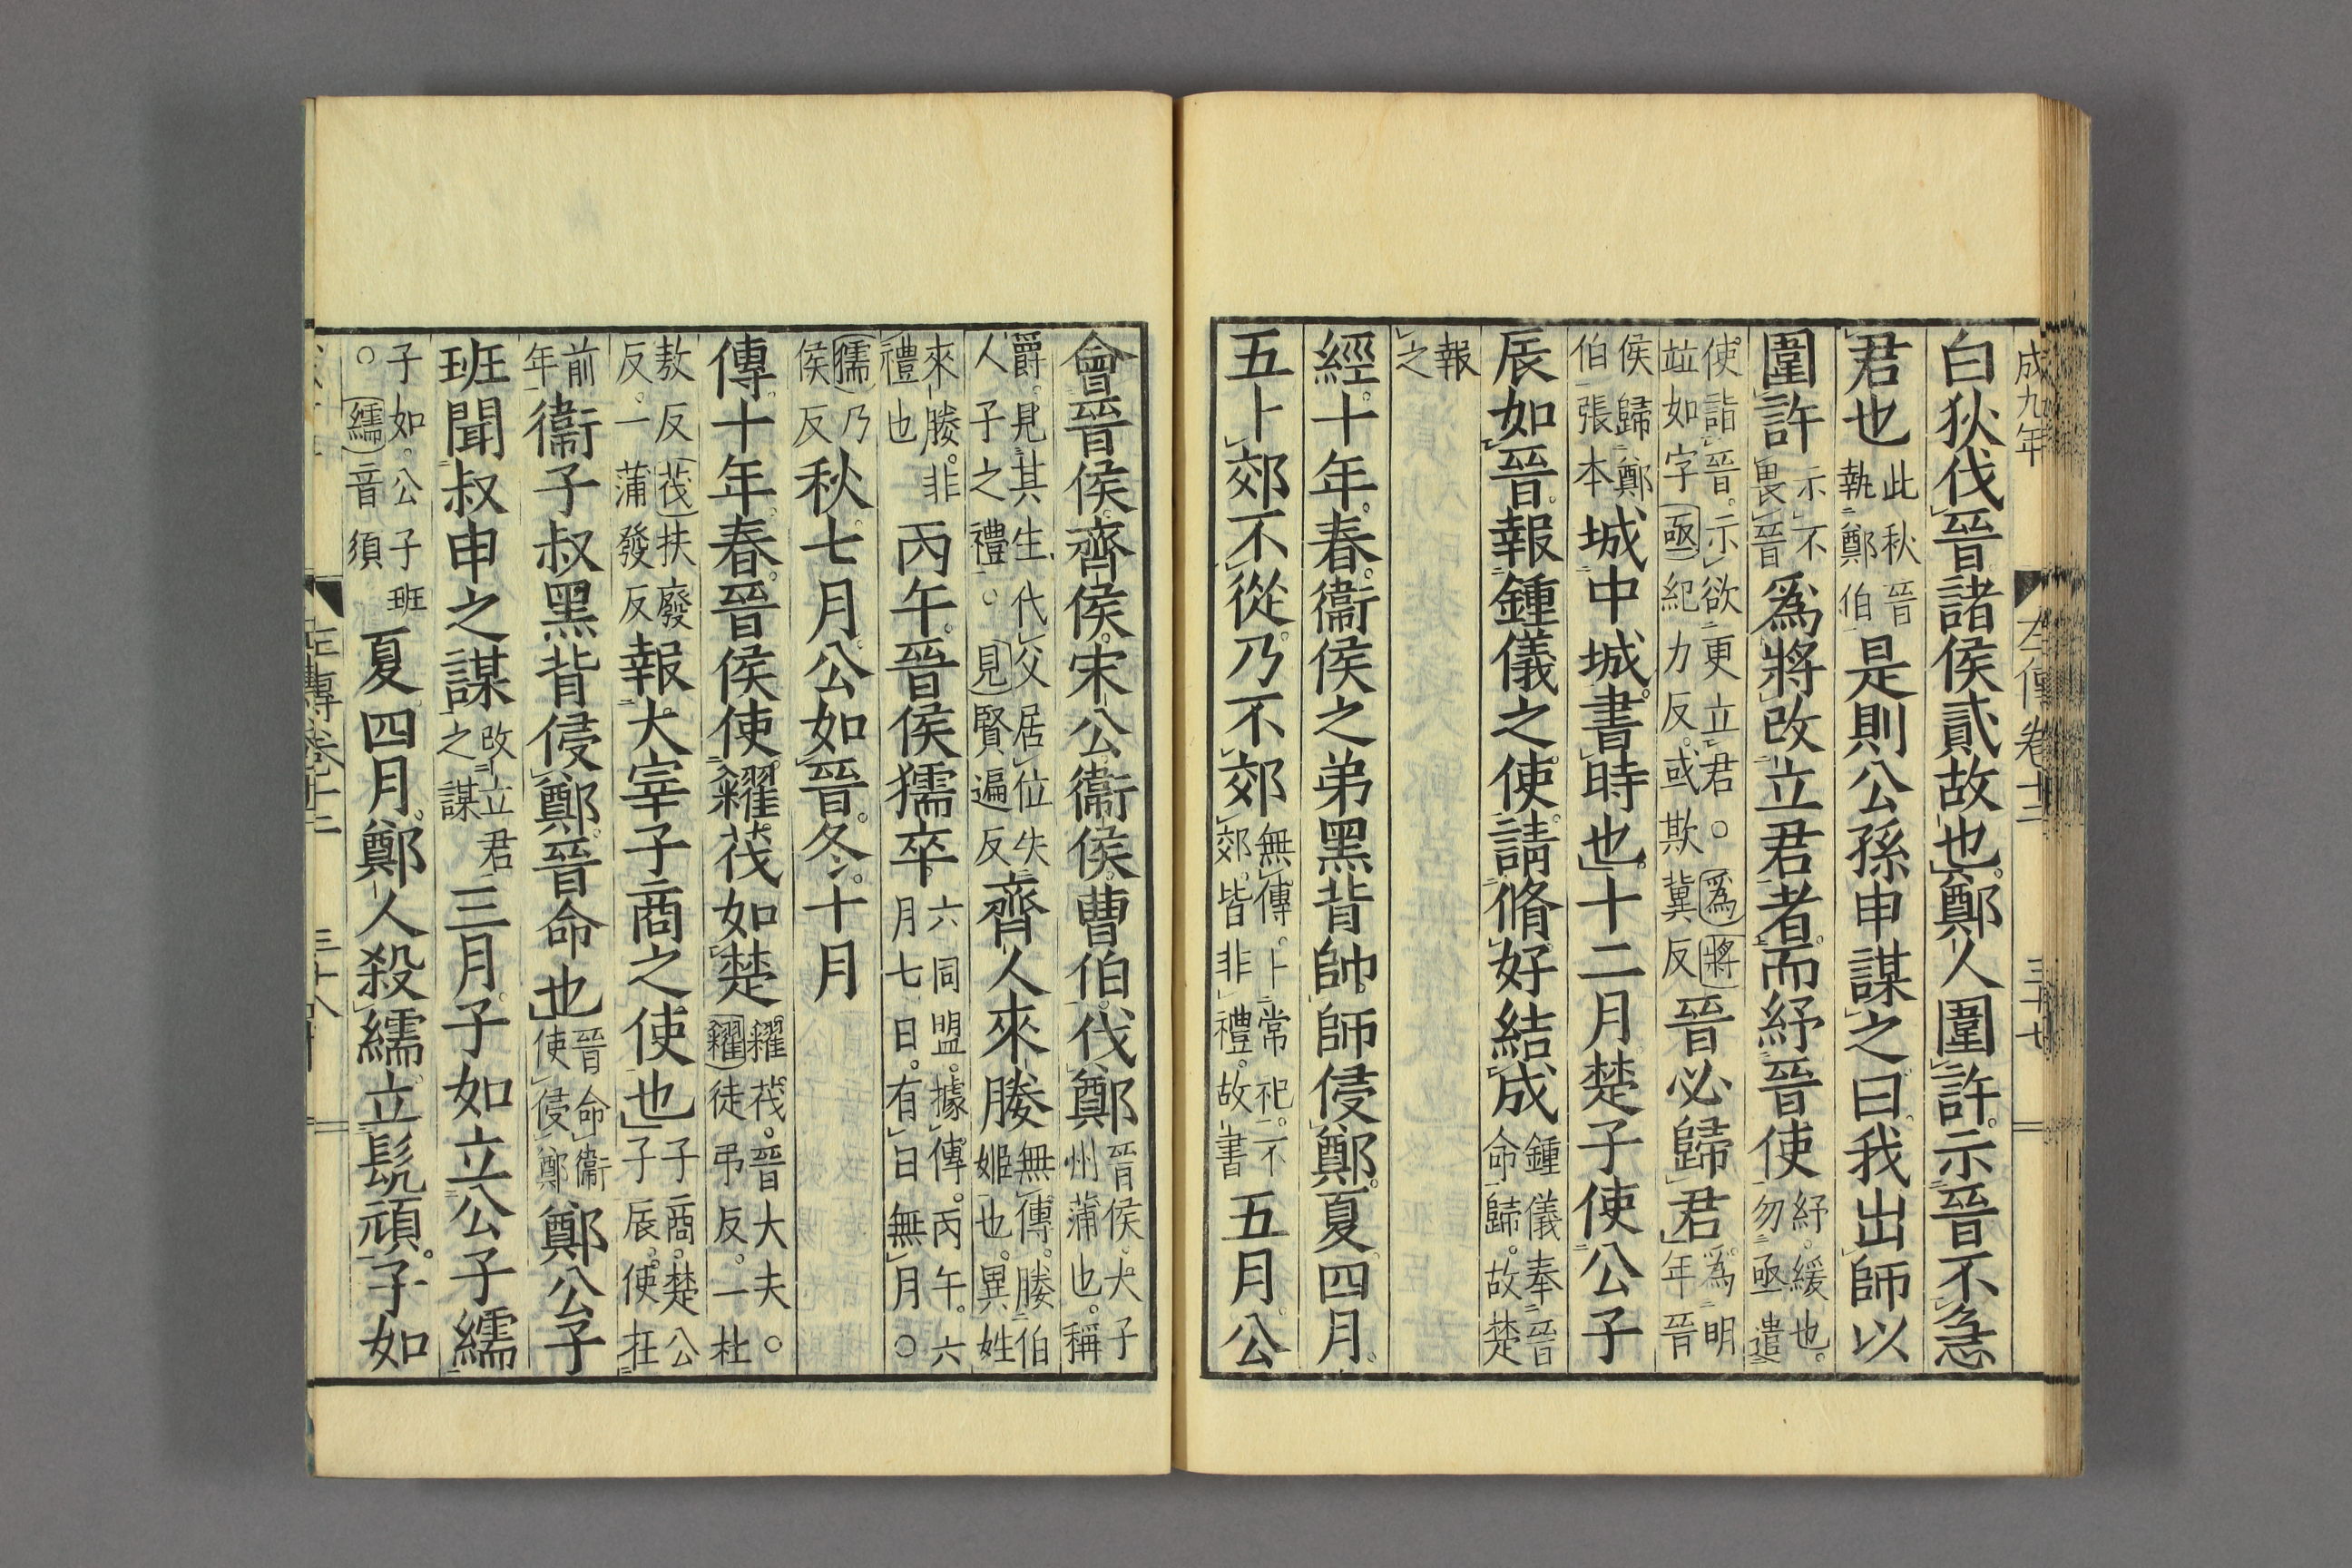 成九年
左傳卷十二
三十七
白狄伐晉諸侯貳故也鄭人圍許示晉不急
君也此秋晉執鄭伯是則公孫申謀之曰我出師以
圍許示不畏晉爲將改立君者而紓晉使紓緩也勿亟遣
使詣晉示欲更立君○爲將竝如字亟紀力反或欺冀反晉必歸君爲明年晉
侯歸鄭伯張本城中城書時也十二月楚子使公子
辰如晉報鍾儀之使請脩好結成鍾儀奉晉命歸故楚
報之
經十年春衞侯之弟黑背帥師侵鄭夏四月
五卜郊不從乃不郊無傳卜常祀不郊皆非禮故書五月公
會晉侯齊侯宋公衞侯曹伯伐鄭晉侯大子州蒲也稱
爵見其生代父居位失人子之禮○見賢遍反齊人來媵無傳媵伯姬也異姓
來媵非禮也丙午晉侯獳卒六同盟據傳丙午六月七日有日無月○
獳乃侯反秋七月公如晉冬十月
傳十年春晉侯使糴茷如楚糴茷晉大夫○糴徒弔反一杜
敖反茷扶廢反一蒲發反報大宰子商之使也子商楚公子辰使在
前年衞子叔黑背侵鄭晉命也晉命衞使侵鄭鄭公子
班聞叔申之謀改立君之謀三月子如立公子繻
子如公子班○繻音須夏四月鄭人殺繻立髡頑子如
左傳卷十二
三十八